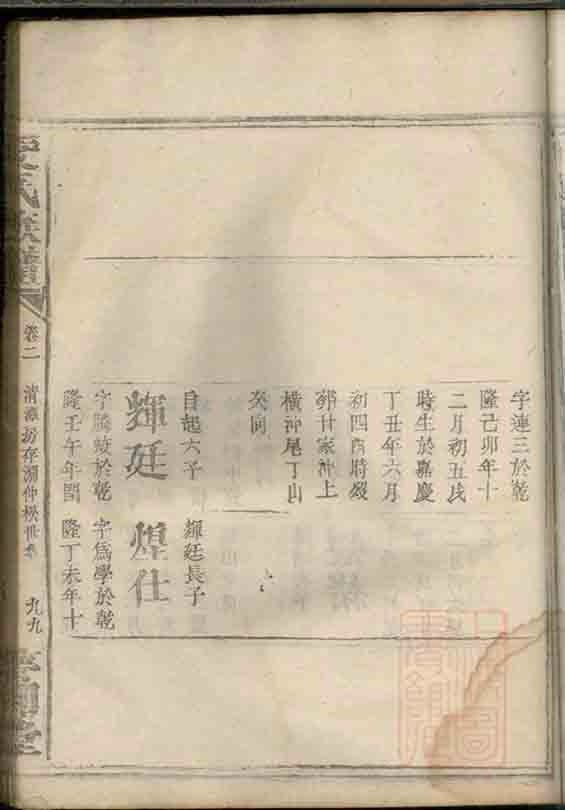 字連三於乾
隆己卯年十
二月初五戌
時生於嘉慶
丁丑年六月
初四酉時歿
葬廿家冲上
橫冲尾丁山
癸向
自起六子
輝廷
字騰蛟於乾
隆壬午年閏
輝廷長子
煌仕
字爲學於乾
隆丁未年十
氏族譜
卷二
清漳房存淵仲
世系
九九
堂